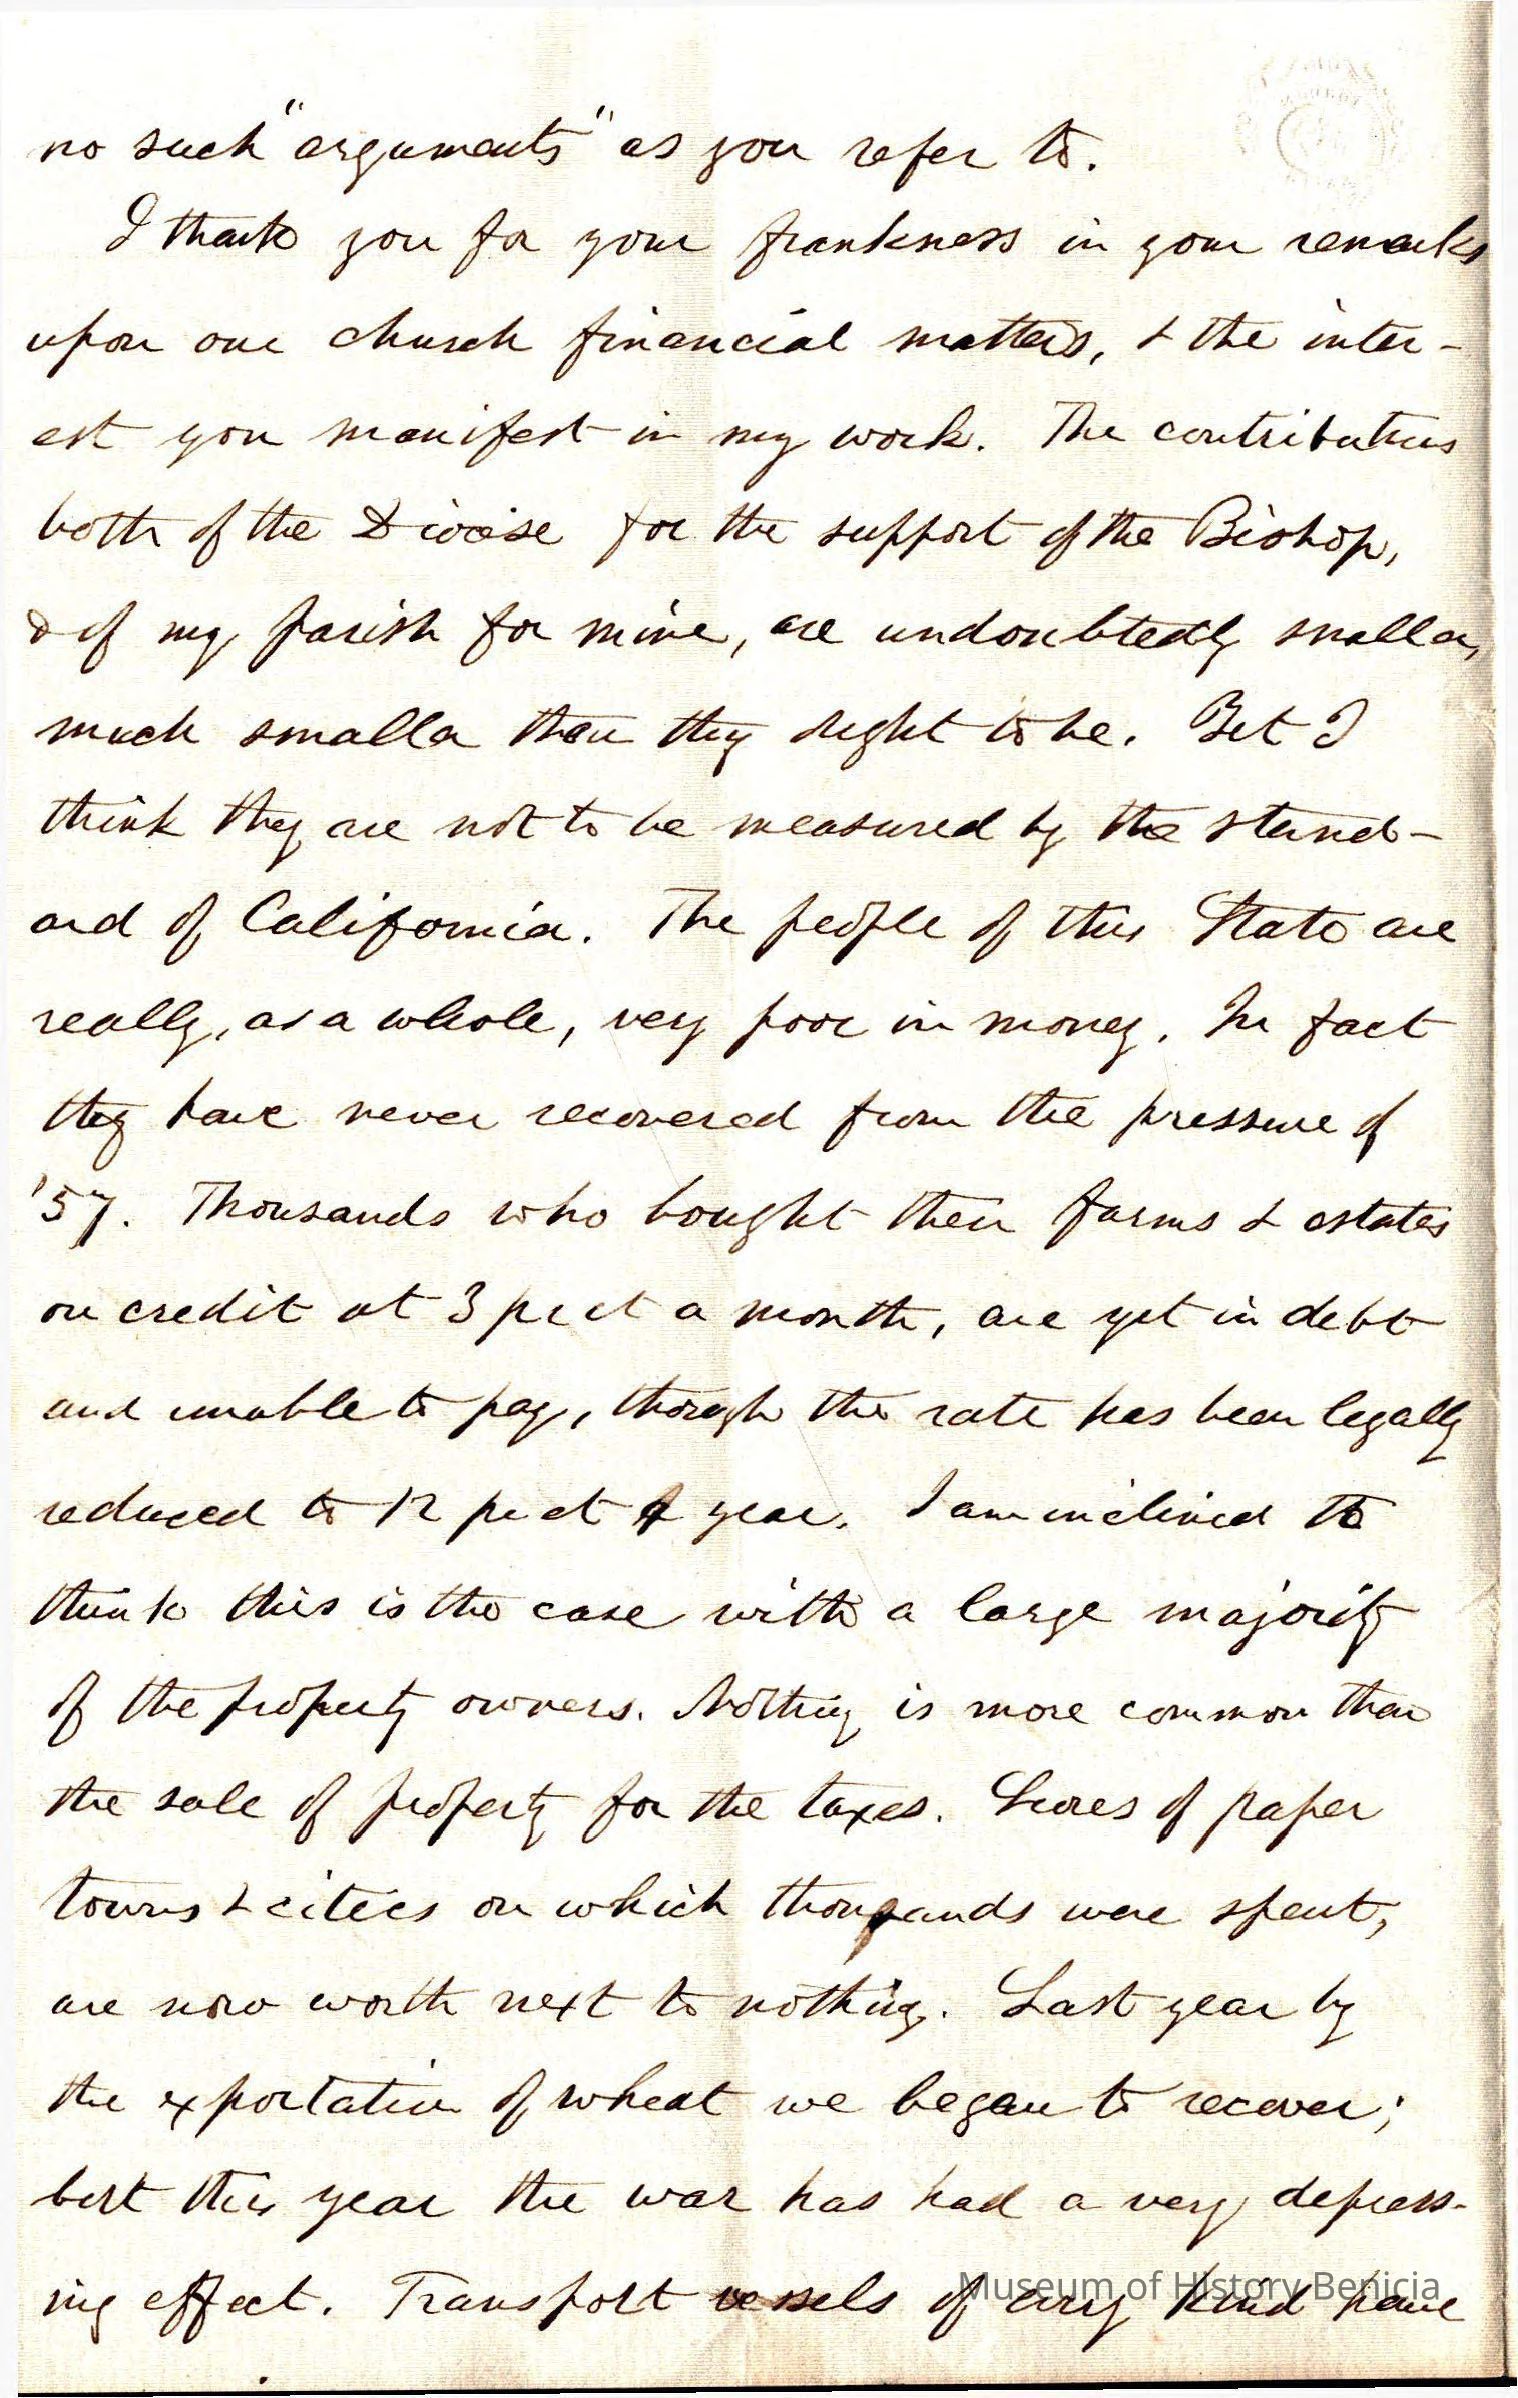 no such "arguments" as you refer to.
I thank you for your frankness in your remarks
upon our church financial matters, & the inter-
est you manifest in my work. The contributions
both of the Diocise for the support of the Bishop,
& of my parish for mine, are undoubtedly smaller,
much smaller than they ought to be. But I
think they are not to be measured by the stand-
ard of California. The people of this State are
really, as a whole, very poor in money. In fact
they have never recovered from the pressure of
'57. Thousands who bought their farms & estates
on credit at 3 pr ct a month, are yet in debt
and unable to pay, though the rate has been legally
reduced to 12 pr ct a year. I am inclined to
think this is the case with a large majority
of the property owners. Nothing is more common than
the sale of property for the taxes. Scores of paper
towns & cities on which thousands were spent,
are now worth next to nothing. Last year by
the exportation of wheat we began to recover;
but this year the war has had a very depress-
ing effect. Transport vessels of every kind have
Museum of History Benicia